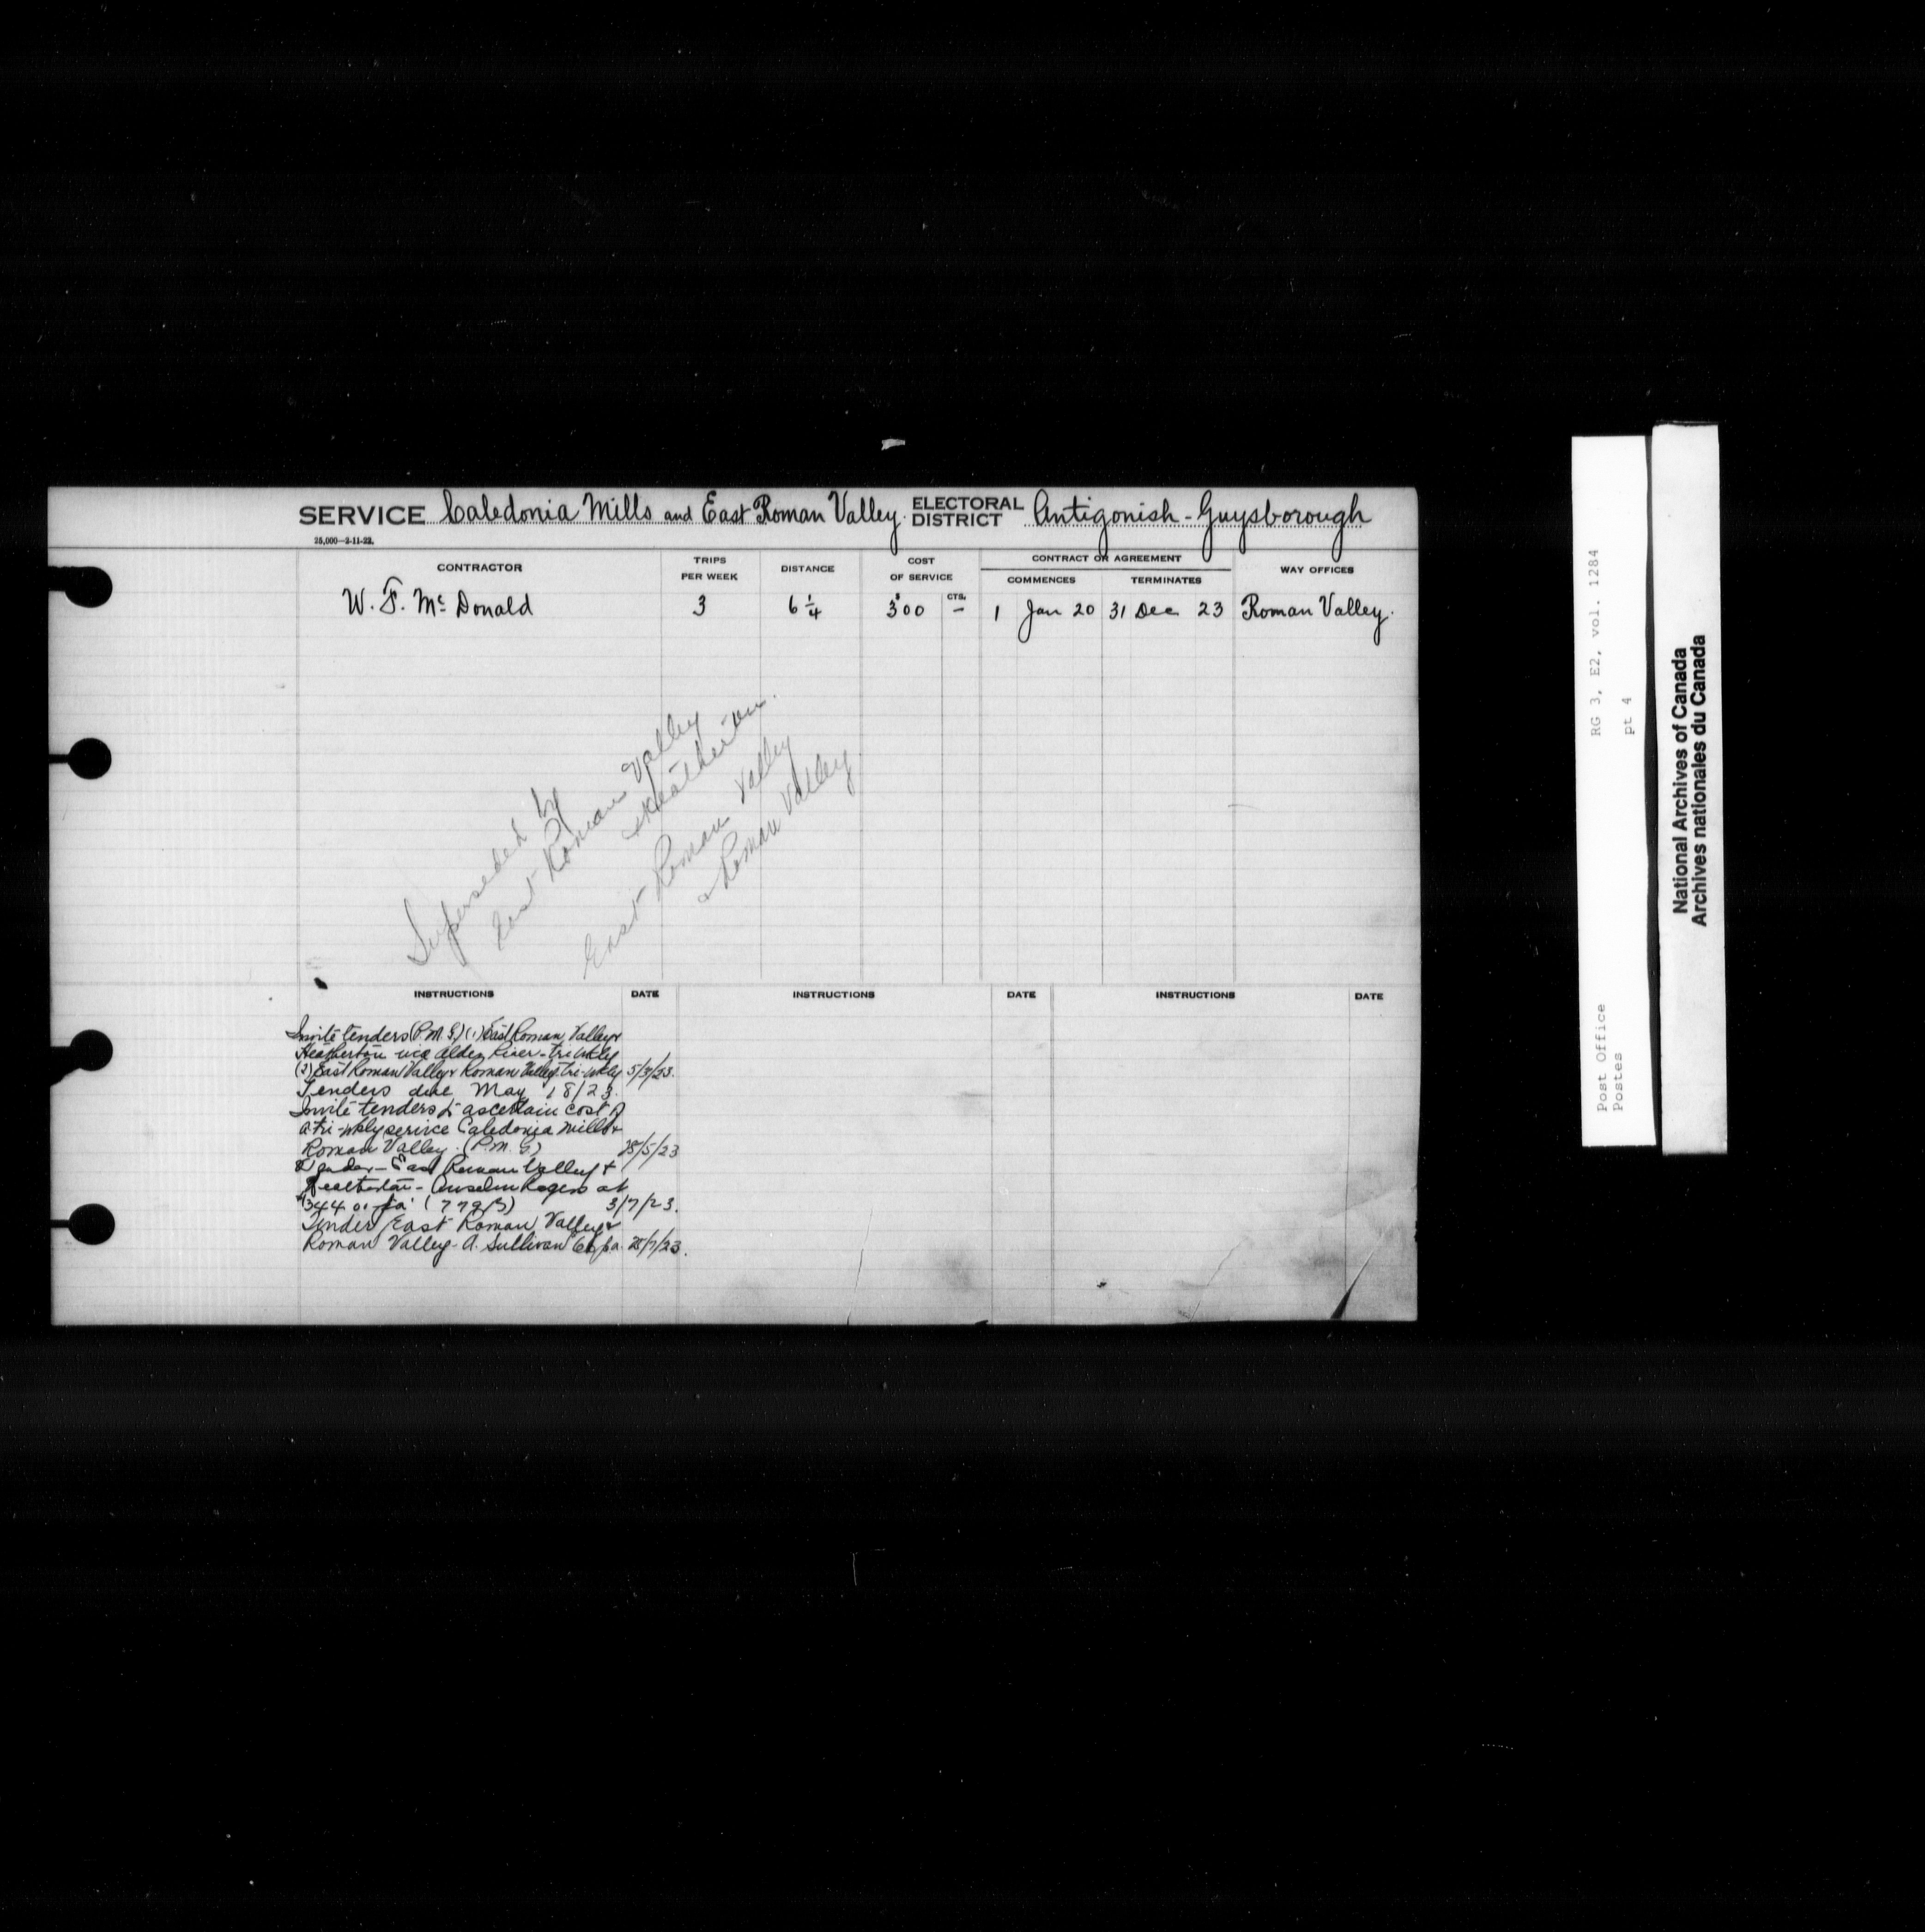 SERVICE Caledonia Mills and East Roman Valley. ELECTORAL DISTRICT Antigonish - Guysborough
25,000—2-11-22.
CONTRACTOR TRIPS PER WEEK DISTANCE COST OF SERVICE CONTRACT OR AGREEMENT COMMENCES TERMINATES WAY OFFICES
$ CTS.
W. F. Mc Donald 3 6 1/4 300 — 1 Jan 20 31 Dec 23 Roman Valley.
Superseded by
East Roman Valley
& Heatherton.
East Roman Valley
& Roman Valley
INSTRUCTIONS DATE INSTRUCTIONS DATE INSTRUCTIONS DATE
Invite tenders (P.M.G.) (1) East Roman Valley &
Heatherton via Alder River - tri wkly
(2) East Roman Valley & Roman Valley tri-wkly 5/3/23.
Tenders due May 18/23.
Invite tenders to ascertain cost of
a tri-wkly service Caledonia Mills &
Roman Valley. (P.M.G.) 28/5/23
Tender - East Roman Valley &
Heatherton - Anselm Rogers at
$344.01 pa 3/7/23.
Tender East Roman Valley &
Roman Valley - A. Sullivan pa. 25/7/23.
RG 3, E2, vol. 1284
pt 4
Post Office
Postes
National Archives of Canada
Archives nationales du Canada